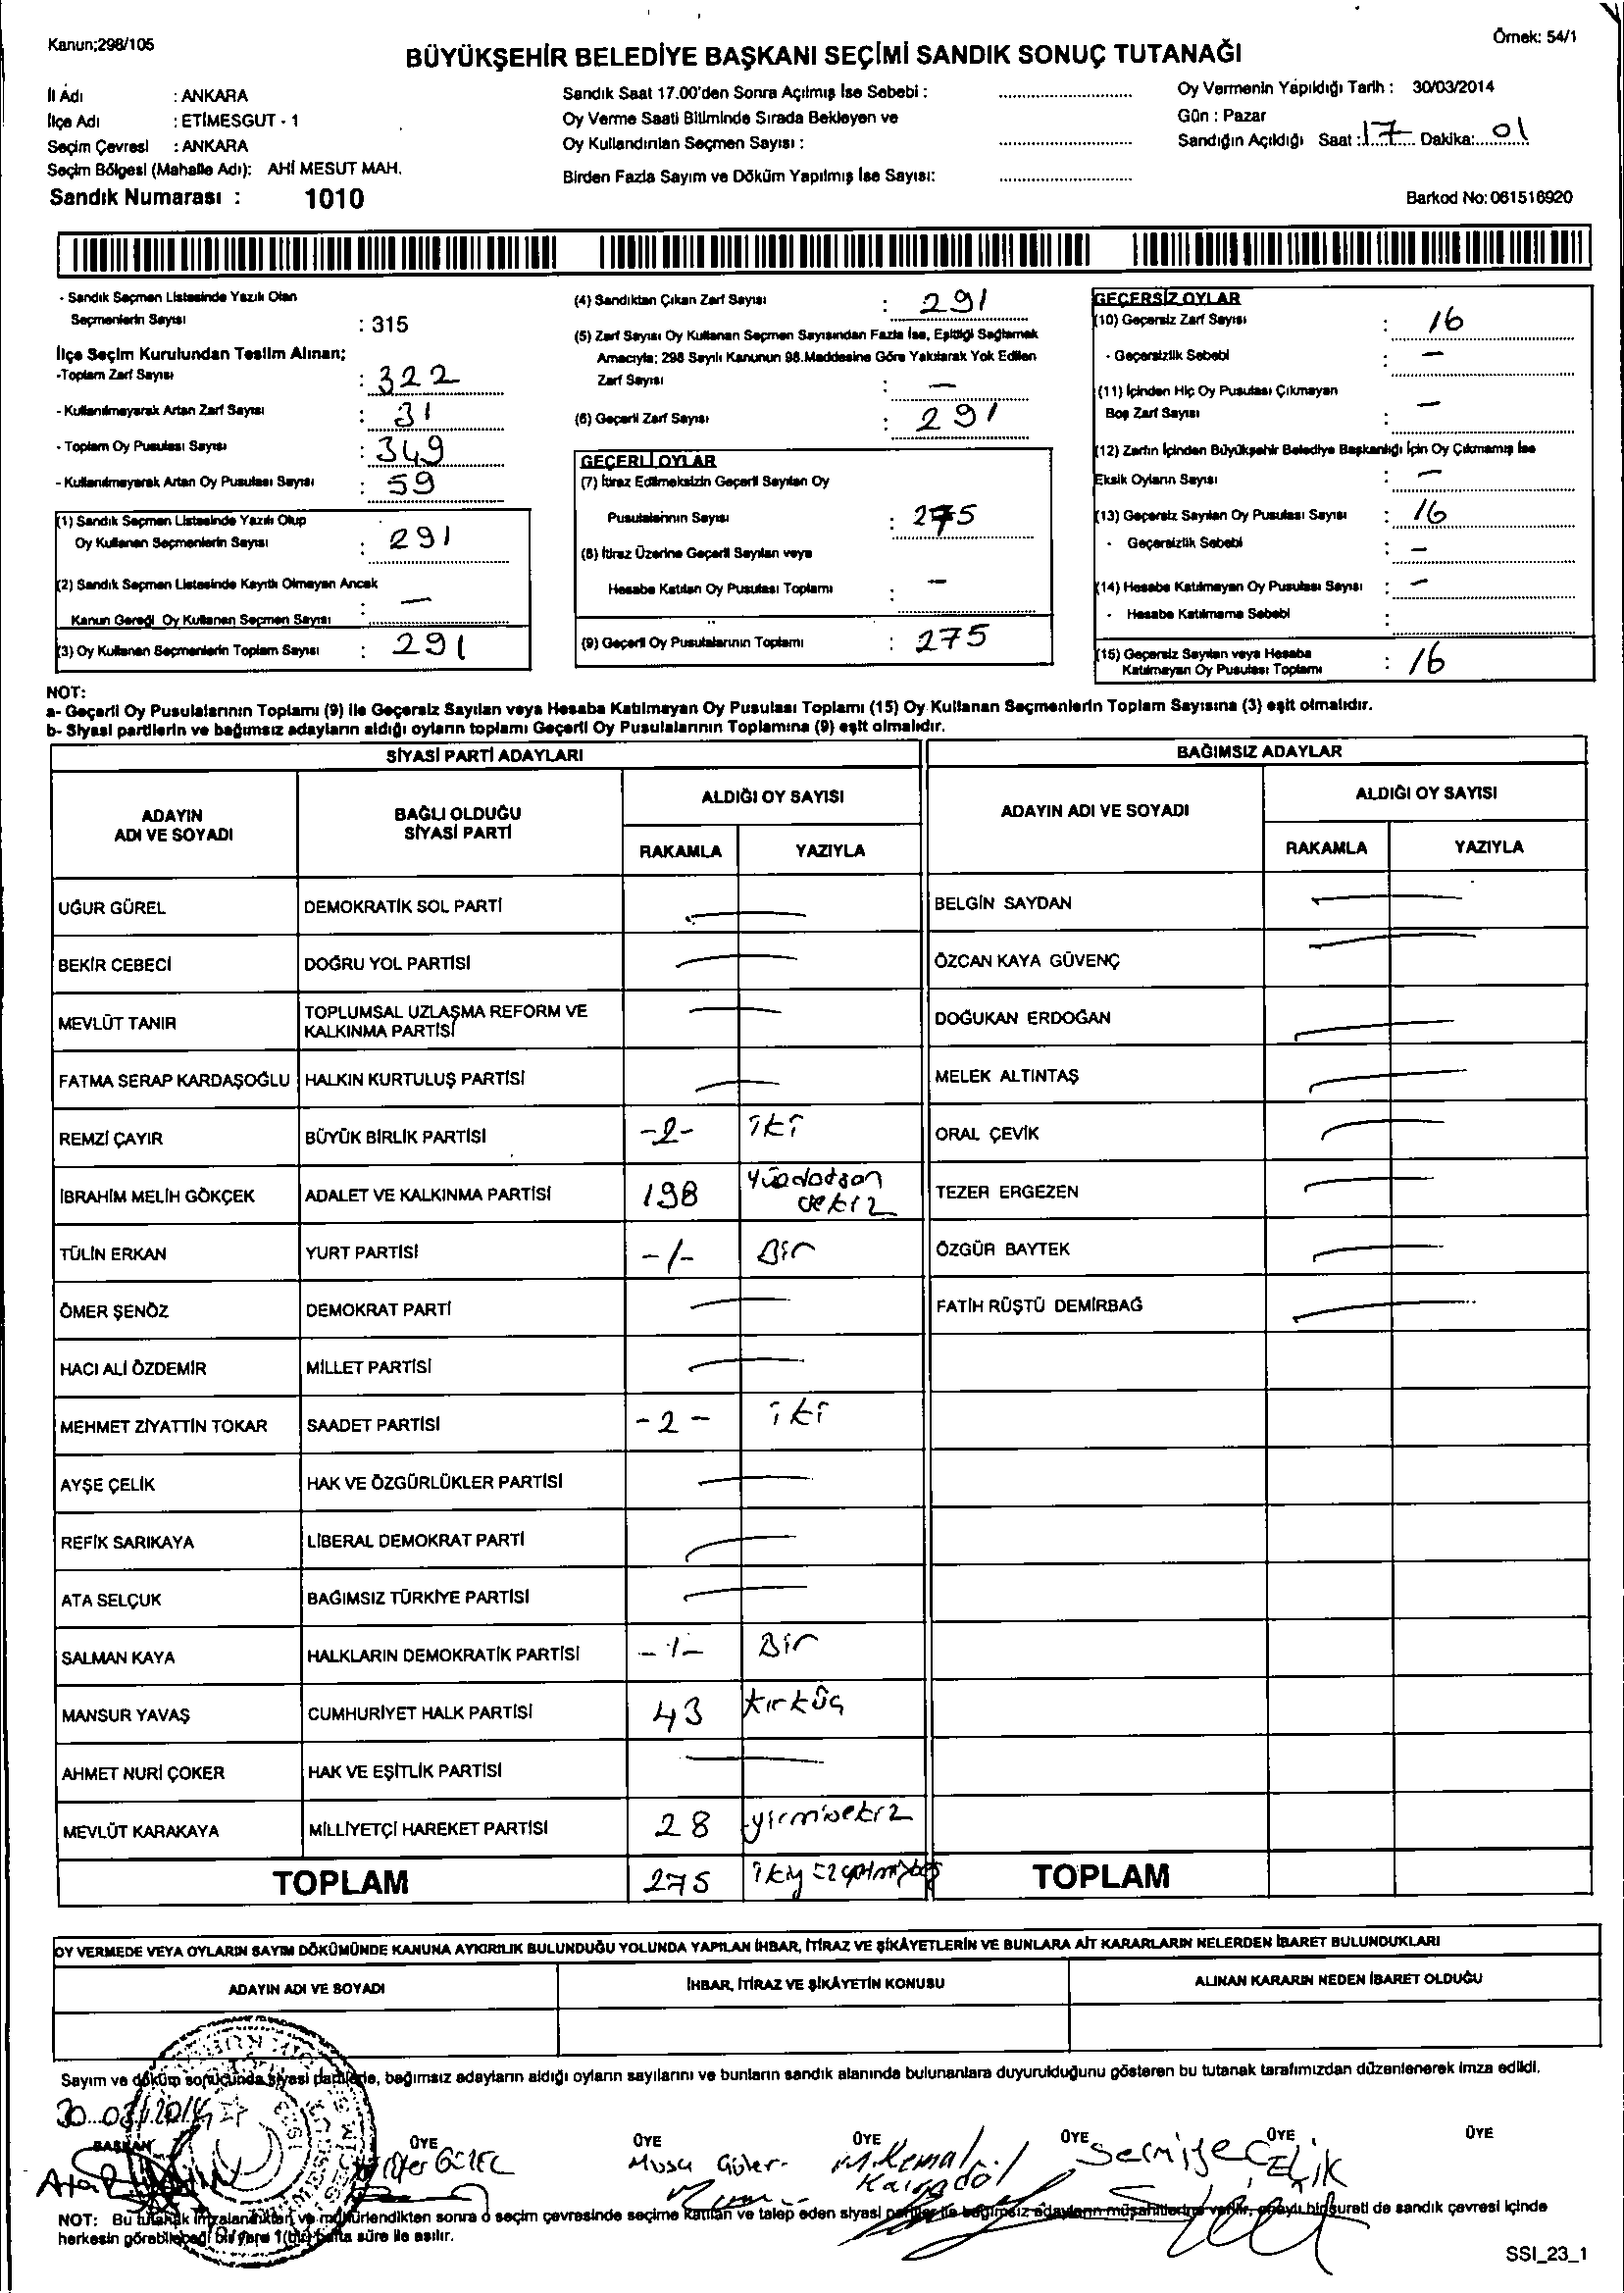 Kanun;298/105
Örnek: 54/1
BÜYÜKŞEHİR BELEDİYE BAŞKANI SEÇİMİ SANDIK SONUÇ TUTANAĞI
İl Adı : ANKARA
İlçe Adı : ETİMESGUT - 1
Seçim Çevresi : ANKARA
Seçim Bölgesi (Mahalle Adı): AHİ MESUT MAH.
Sandık Numarası : 1010
Sandık Saat 17.00'den Sonra Açılmış İse Sebebi :
Oy Verme Saati Bitiminde Sırada Bekleyen ve
Oy Kullandırılan Seçmen Sayısı :
Birden Fazla Sayım ve Döküm Yapılmış İse Sayısı:
Oy Vermenin Yapıldığı Tarih : 30/03/2014
Gün : Pazar
Sandığın Açıldığı Saat : 17 Dakika: 01
Barkod No: 061516920
- Sandık Seçmen Listesinde Yazılı Olan
Seçmenlerin Sayısı : 315
İlçe Seçim Kurulundan Teslim Alınan;
-Toplam Zarf Sayısı : 322
- Kullanılmayarak Artan Zarf Sayısı : 31
- Toplam Oy Pusulası Sayısı : 349
- Kullanılmayarak Artan Oy Pusulası Sayısı : 59
(1) Sandık Seçmen Listesinde Yazılı Olup
Oy Kullanan Seçmenlerin Sayısı : 291
(2) Sandık Seçmen Listesinde Kayıtlı Olmayan Ancak
Kanun Gereği Oy Kullanan Seçmen Sayısı : —
(3) Oy Kullanan Seçmenlerin Toplam Sayısı : 291
(4) Sandıktan Çıkan Zarf Sayısı : 291
(5) Zarf Sayısı Oy Kullanan Seçmen Sayısından Fazla İse, Eşitliği Sağlamak
Amacıyla; 298 Sayılı Kanunun 98.Maddesine Göre Yakılarak Yok Edilen
Zarf Sayısı : —
(6) Geçerli Zarf Sayısı : 291
GEÇERLİ OYLAR
(7) İtiraz Edilmeksizin Geçerli Sayılan Oy
Pusulalarının Sayısı : 275
(8) İtiraz Üzerine Geçerli Sayılan veya
Hesaba Katılan Oy Pusulası Toplamı : —
(9) Geçerli Oy Pusulalarının Toplamı : 275
GEÇERSİZ OYLAR
(10) Geçersiz Zarf Sayısı : 16
- Geçersizlik Sebebi : —
(11) İçinden Hiç Oy Pusulası Çıkmayan
Boş Zarf Sayısı : —
(12) Zarfın İçinden Büyükşehir Belediye Başkanlığı İçin Oy Çıkmamış İse
Eksik Oyların Sayısı : —
(13) Geçersiz Sayılan Oy Pusulası Sayısı : 16
- Geçersizlik Sebebi : —
(14) Hesaba Katılmayan Oy Pusulası Sayısı : —
- Hesaba Katılmama Sebebi :
(15) Geçersiz Sayılan veya Hesaba
Katılmayan Oy Pusulası Toplamı : 16
NOT:
a- Geçerli Oy Pusulalarının Toplamı (9) ile Geçersiz Sayılan veya Hesaba Katılmayan Oy Pusulası Toplamı (15) Oy Kullanan Seçmenlerin Toplam Sayısına (3) eşit olmalıdır.
b- Siyasi partilerin ve bağımsız adayların aldığı oyların toplamı Geçerli Oy Pusulalarının Toplamına (9) eşit olmalıdır.
SİYASİ PARTİ ADAYLARI
ADAYIN ADI VE SOYADI
BAĞLI OLDUĞU SİYASİ PARTİ
ALDIĞI OY SAYISI
RAKAMLA YAZIYLA
UĞUR GÜREL DEMOKRATİK SOL PARTİ —
BEKİR CEBECİ DOĞRU YOL PARTİSİ —
MEVLÜT TANIR TOPLUMSAL UZLAŞMA REFORM VE KALKINMA PARTİSİ —
FATMA SERAP KARDAŞOĞLU HALKIN KURTULUŞ PARTİSİ —
REMZİ ÇAYIR BÜYÜK BİRLİK PARTİSİ -2- iki
İBRAHİM MELİH GÖKÇEK ADALET VE KALKINMA PARTİSİ 198 Yüzdoksan sekiz
TÜLİN ERKAN YURT PARTİSİ -1- Bir
ÖMER ŞENÖZ DEMOKRAT PARTİ —
HACI ALİ ÖZDEMİR MİLLET PARTİSİ —
MEHMET ZİYATTİN TOKAR SAADET PARTİSİ -2- iki
AYŞE ÇELİK HAK VE ÖZGÜRLÜKLER PARTİSİ —
REFİK SARIKAYA LİBERAL DEMOKRAT PARTİ —
ATA SELÇUK BAĞIMSIZ TÜRKİYE PARTİSİ —
SALMAN KAYA HALKLARIN DEMOKRATİK PARTİSİ -1- Bir
MANSUR YAVAŞ CUMHURİYET HALK PARTİSİ 43 kırküç
AHMET NURİ ÇOKER HAK VE EŞİTLİK PARTİSİ —
MEVLÜT KARAKAYA MİLLİYETÇİ HAREKET PARTİSİ 28 yirmisekiz
TOPLAM 275
BAĞIMSIZ ADAYLAR
ADAYIN ADI VE SOYADI
ALDIĞI OY SAYISI
RAKAMLA YAZIYLA
BELGİN SAYDAN —
ÖZCAN KAYA GÜVENÇ —
DOĞUKAN ERDOĞAN —
MELEK ALTINTAŞ —
ORAL ÇEVİK —
TEZER ERGEZEN —
ÖZGÜR BAYTEK —
FATİH RÜŞTÜ DEMİRBAĞ —
TOPLAM
OY VERMEDE VEYA OYLARIN SAYIM DÖKÜMÜNDE KANUNA AYKIRILIK BULUNDUĞU YOLUNDA YAPILAN İHBAR, İTİRAZ VE ŞİKÂYETLERİN VE BUNLARA AİT KARARLARIN NELERDEN İBARET BULUNDUKLARI
ADAYIN ADI VE SOYADI
İHBAR, İTİRAZ VE ŞİKÂYETİN KONUSU
ALINAN KARARIN NEDEN İBARET OLDUĞU
Sayım ve döküm sonucunda siyasi partilerle, bağımsız adayların aldığı oyların sayılarını ve bunların sandık alanında bulunanlara duyurulduğunu gösteren bu tutanak tarafımızdan düzenlenerek imza edildi.
30.03/2014
BAŞKAN ÜYE ÜYE ÜYE ÜYE ÜYE ÜYE
Musa Güler
M.Kemal
Semiye ÇELİK
NOT: Bu tutanak imzalandıktan ve mühürlendikten sonra o seçim çevresinde seçime katılan ve talep eden siyasi partiler ile bağımsız adayların müşahitlerine verilir, onaylı bir sureti de sandık çevresi içinde
herkesin görebileceği bir yere 1(bir) hafta süre ile asılır.
SSI_23_1